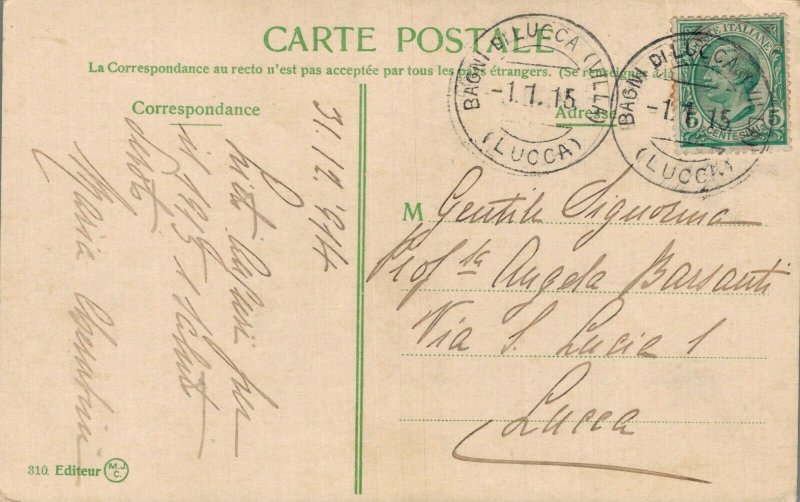 CARTE POSTALE
La Correspondance au recto n'est pas acceptée par tous les pays étrangers. (Se renseigner à la
Correspondance
Adresse
BAGNI DI LUCCA (VILLA)
-1.1.15
(LUCCA)
BAGNI DI LUCCA
-1.1.15
(LUCCA)
POSTE ITALIANE
5
CENTESIMI
5
31.12.914
per
il 1915
Maria
M Gentile Signorina
Prof.ssa Angela Barsanti
Via S. Lucia 1
Lucca
310. Editeur M.J.C.